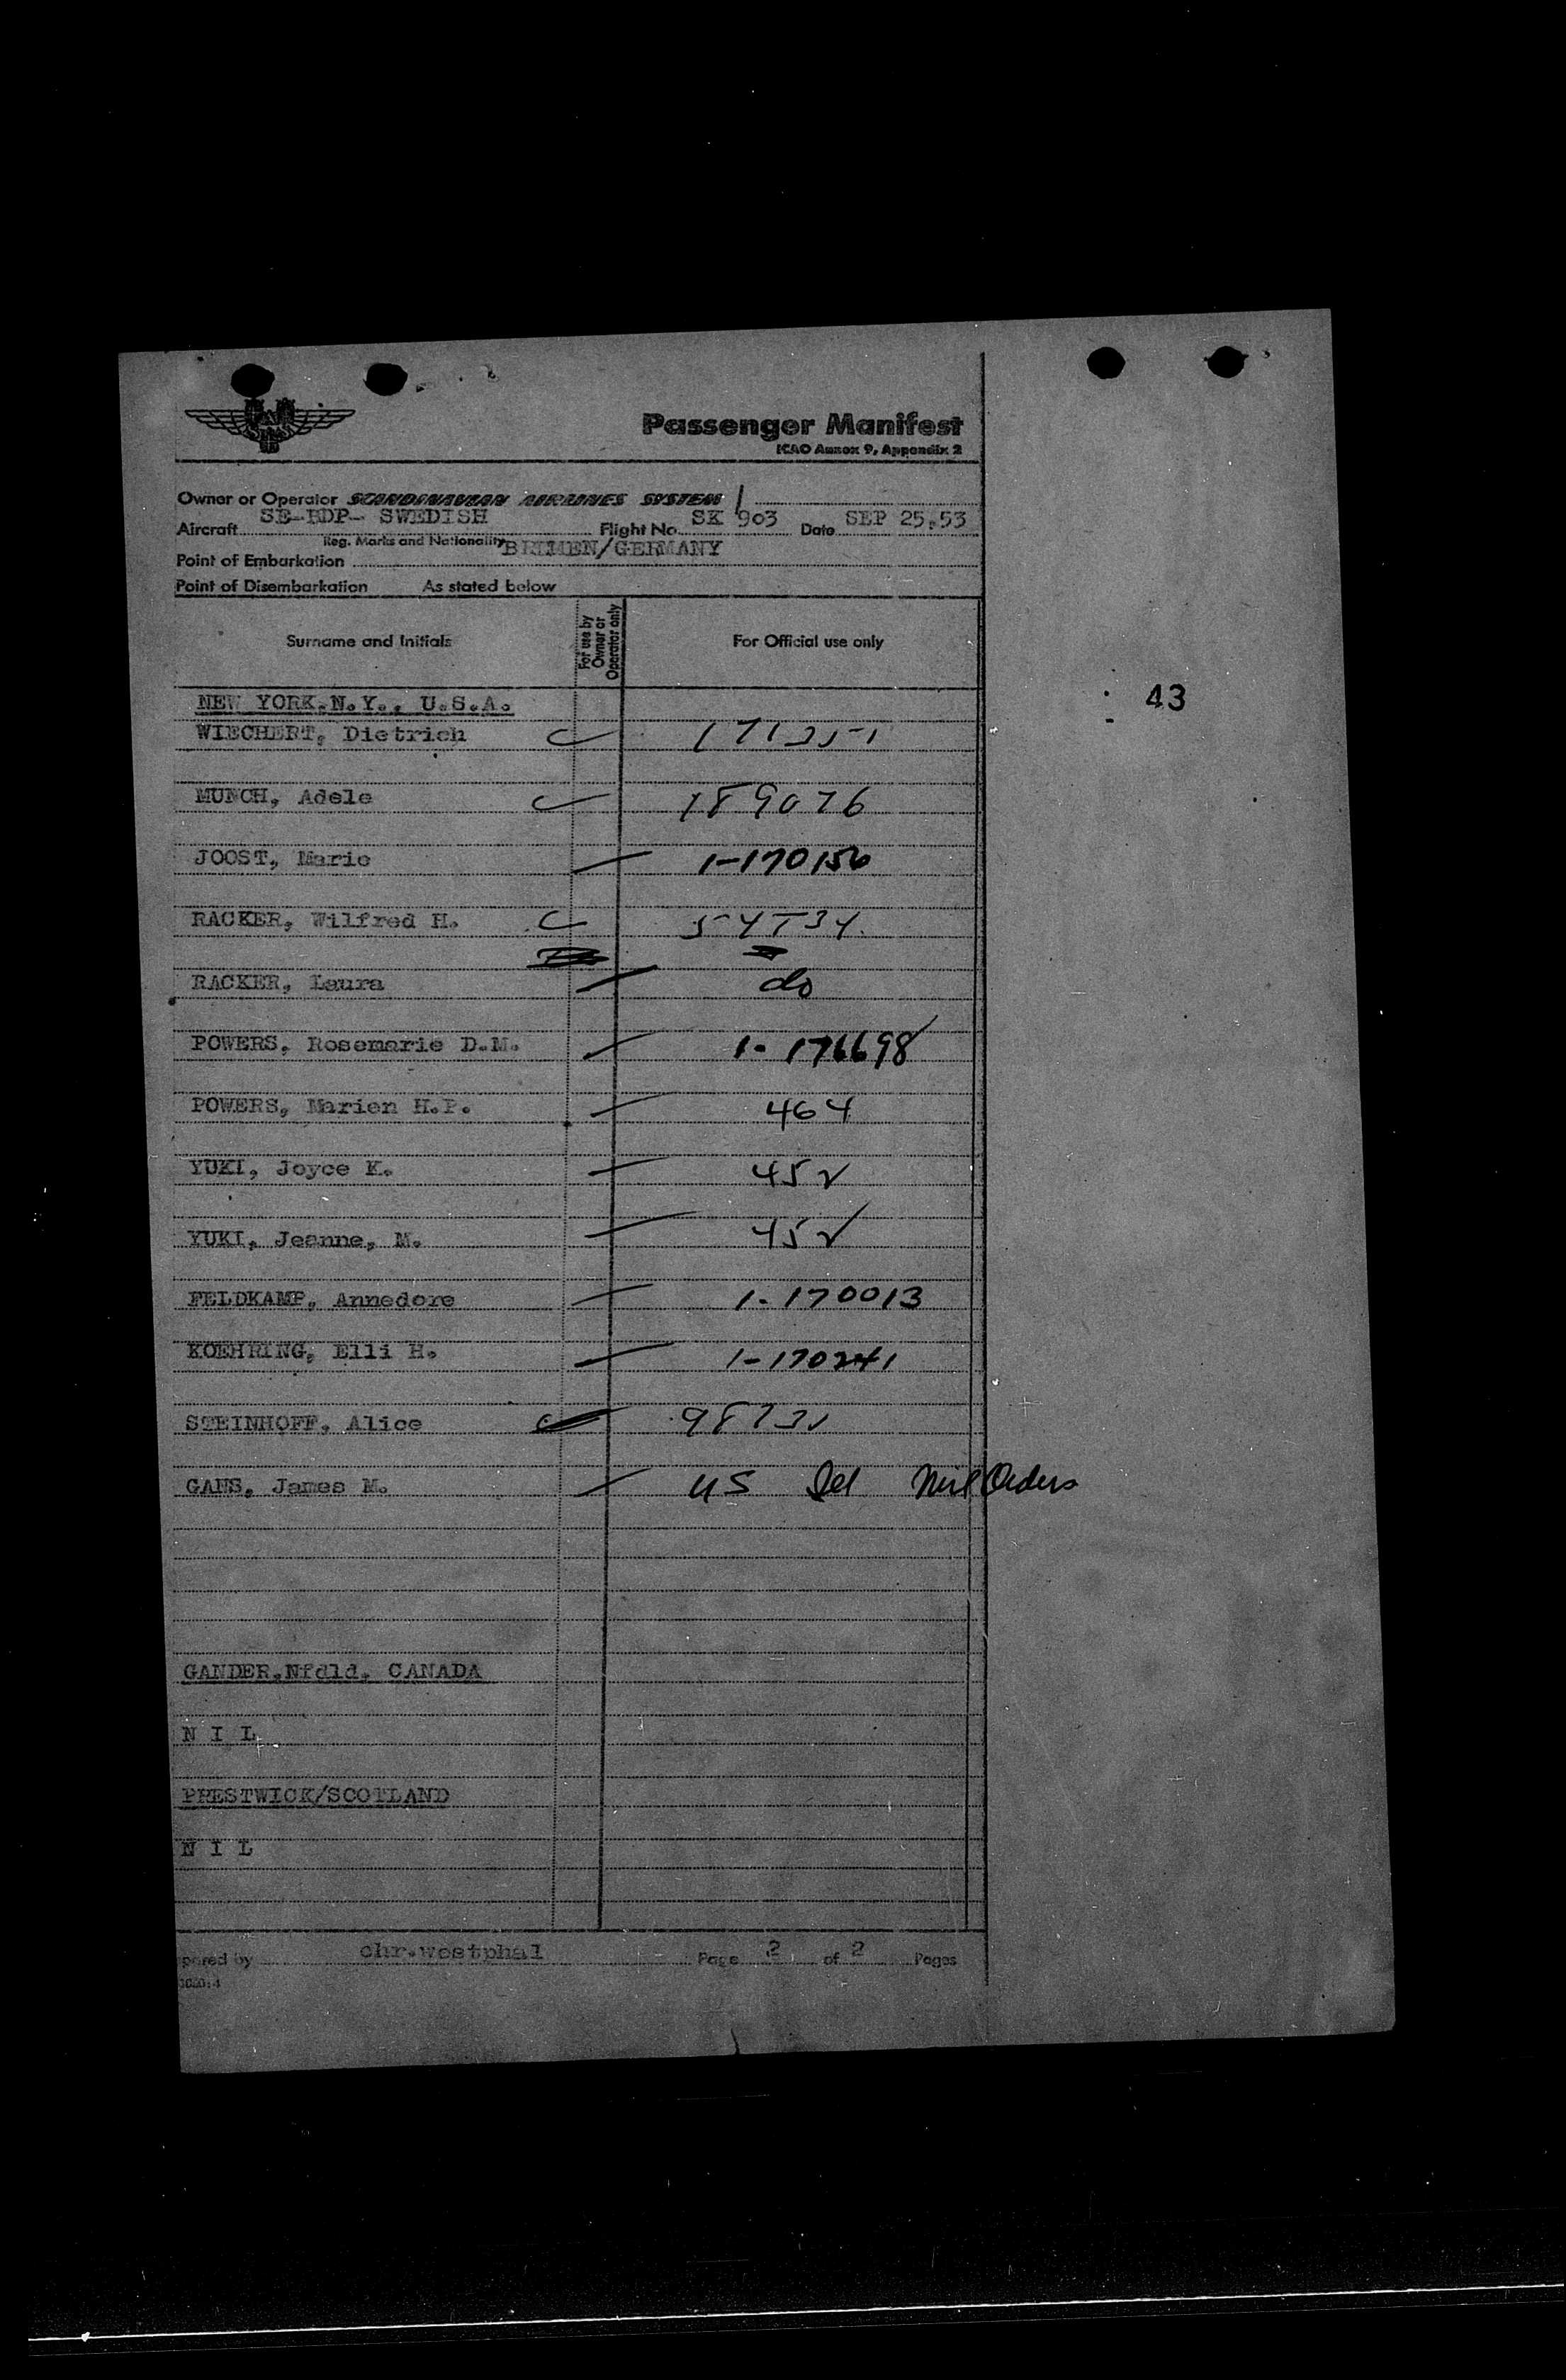 Passenger Manifest
ICAO Annex 9, Appendix 2
Owner or Operator SCANDINAVIAN AIRLINES SYSTEM
Aircraft SE-BDP- SWEDISH Flight No. SK 903 Date SEP 25.53
Reg. Marks and Nationality
Point of Embarkation BREMEN/GERMANY
Point of Disembarkation As stated below
Surname and Initials For use by Owner or Operator only For Official use only
43
NEW YORK.N.Y., U.S.A.
WIECHERT, Dietrich
MUNCH, Adele 189076
JOOST, Marie 1-170156
RACKER, Wilfred H.
RACKER, Laura do
POWERS, Rosemarie D.M. 1-176698
POWERS, Marion H.P. 464
YUKI, Joyce K. 452
YUKI, Jeanne, M. 452
FELDKAMP, Annedore 1-170013
KOEHRING, Elli H. 1-170241
STEINHOFF, Alice
GANS, James M. US Orders
GANDER.Nfdld. CANADA
N I L
PRESTWICK/SCOTLAND
N I L
pared by chr.westphal Page 2 of 2 Pages